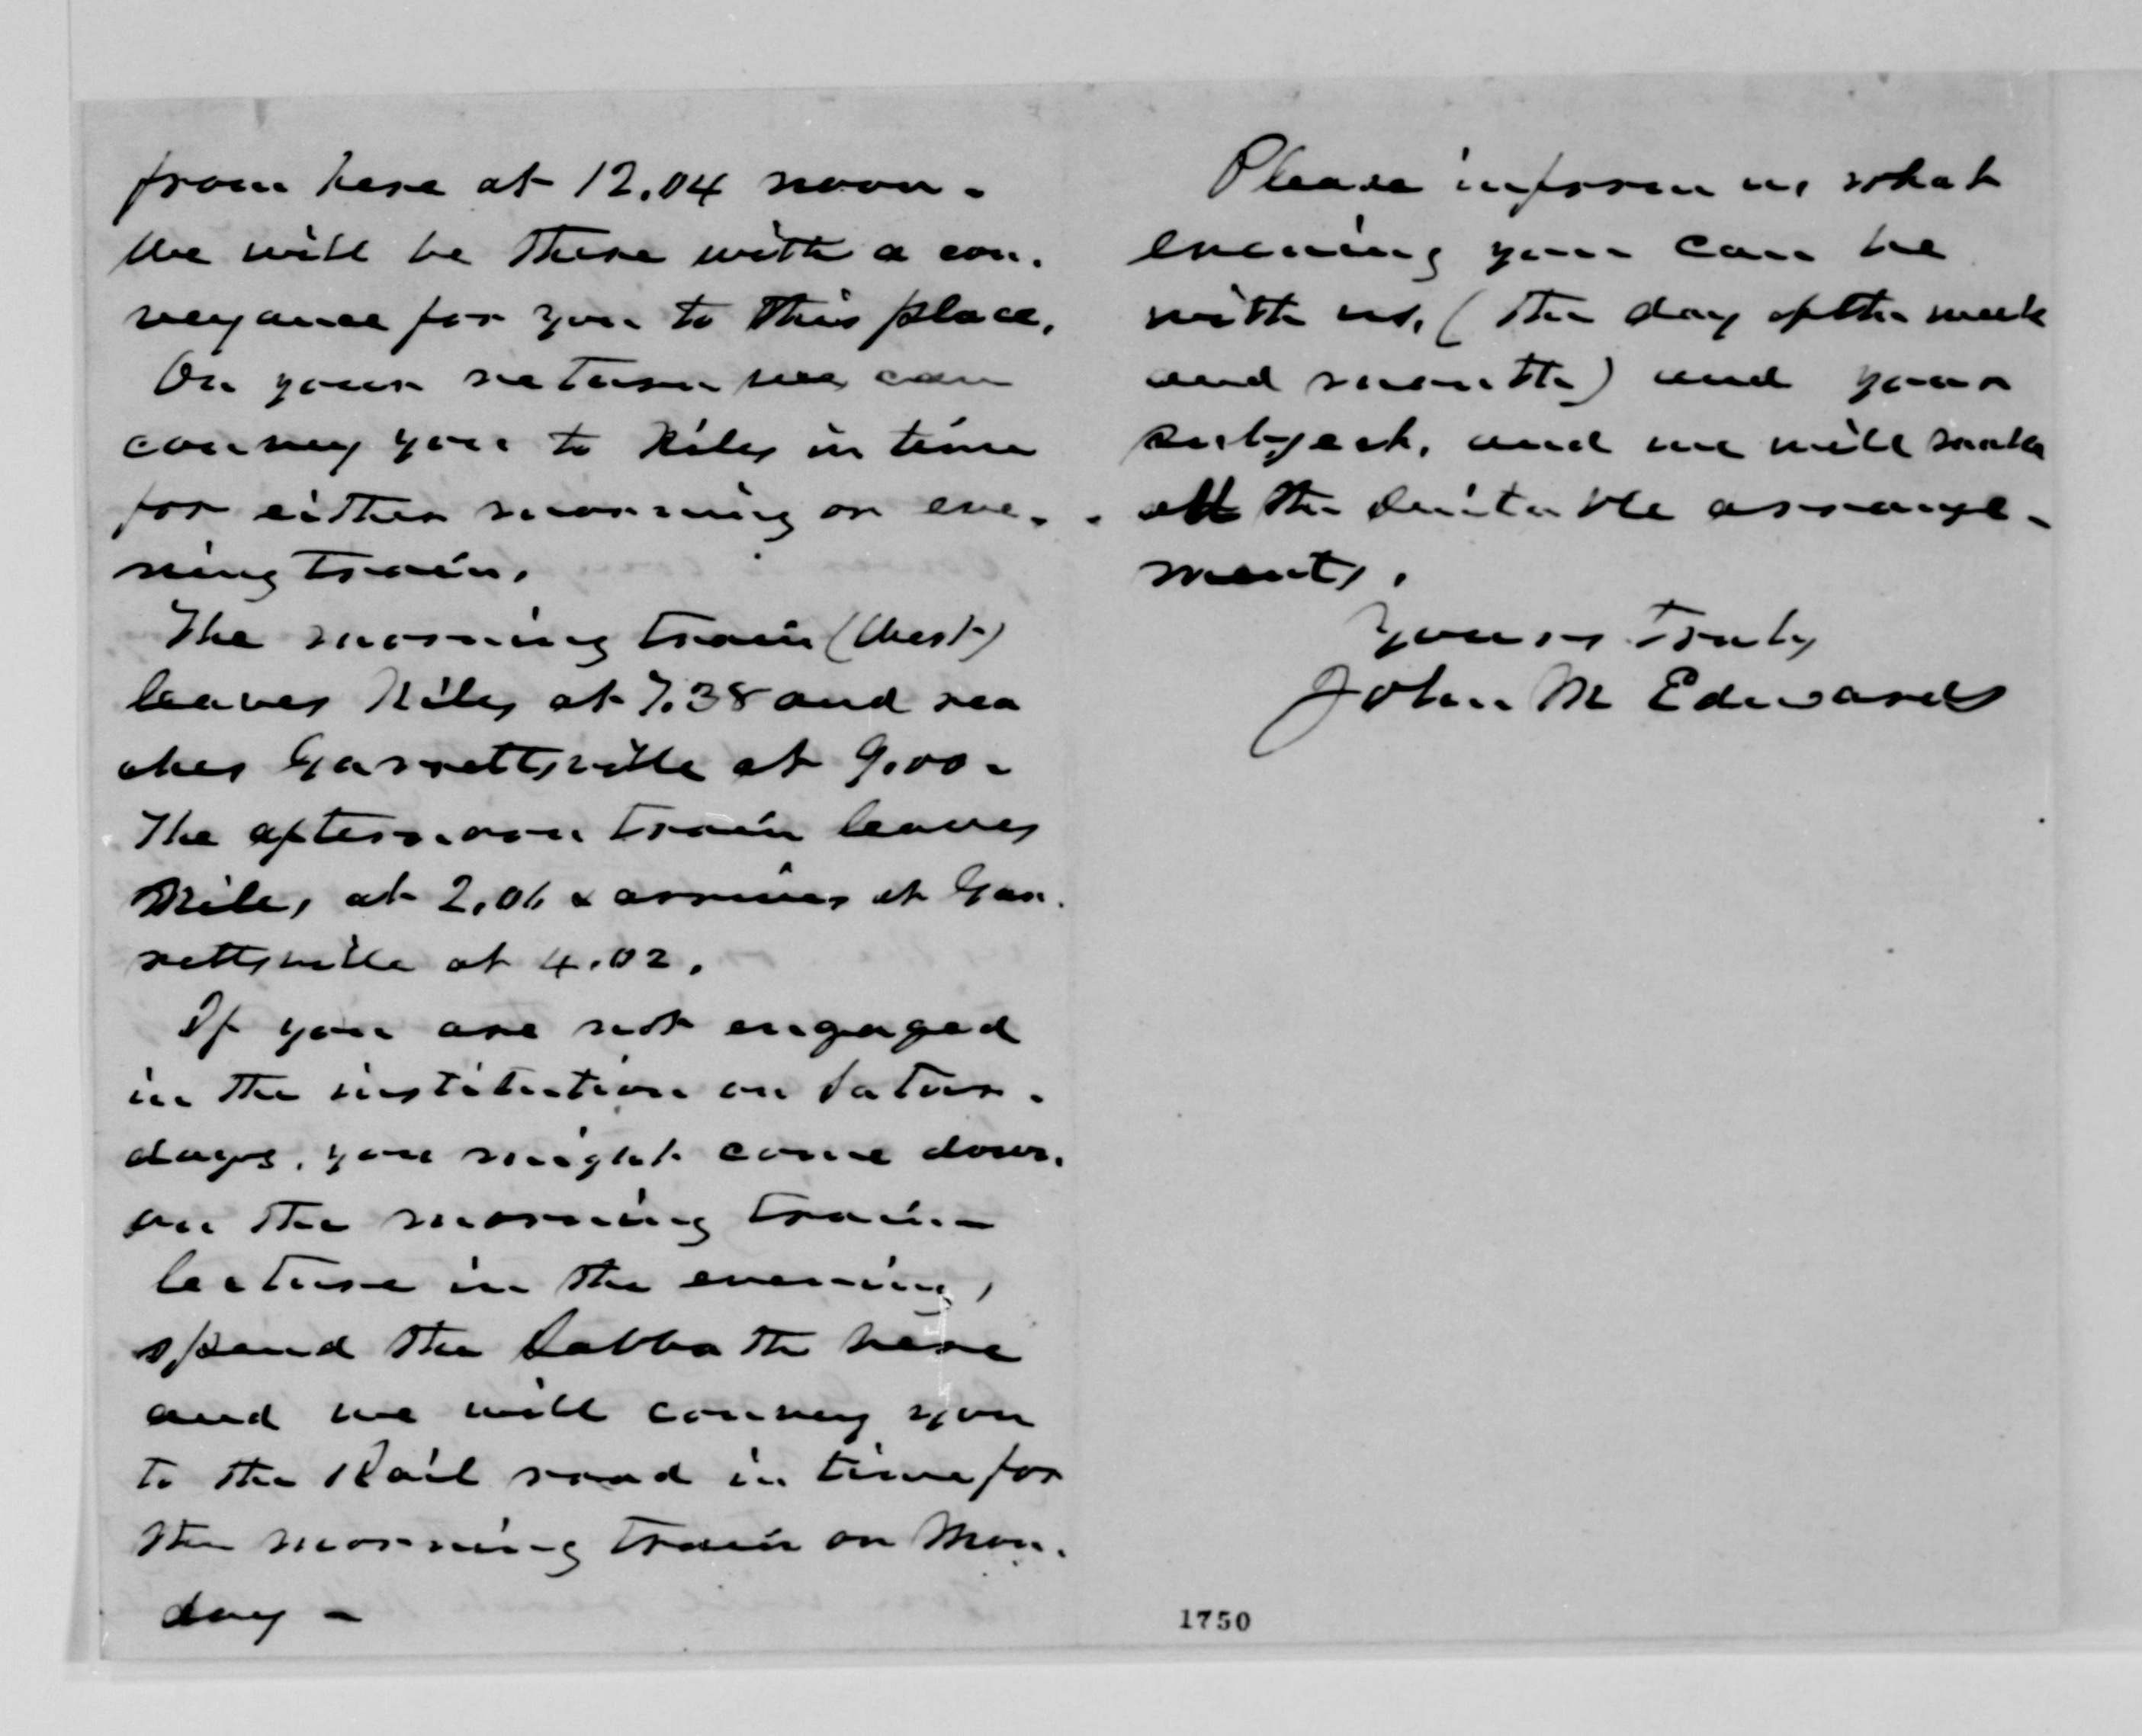 from here at 12.04 noon.
We will be there with a con-
veyance for you to this place.
On your return we can
convey you to Niles in time
for either morning or eve-
ning train.
The morning train (West)
leaves Niles at 7.38 and rea
ches Garrettsville at 9.00.
The afternoon train leaves
Niles, at 2.06 & arrives at Gar-
rettsville at 4.02.
If you are not engaged
in the institution on Satur-
days, you might come down
on the morning train -
lecture in the evening,
spend the Sabbath here
and we will convey you
to the Rail road in time for
the morning train on Mon-
day -
Please inform us what
evening you can be
with us, (the day of the week
and month) and your
subject, and we will make
all the suitable arrange-
ments.
Yours Truly
John M Edwards
1750